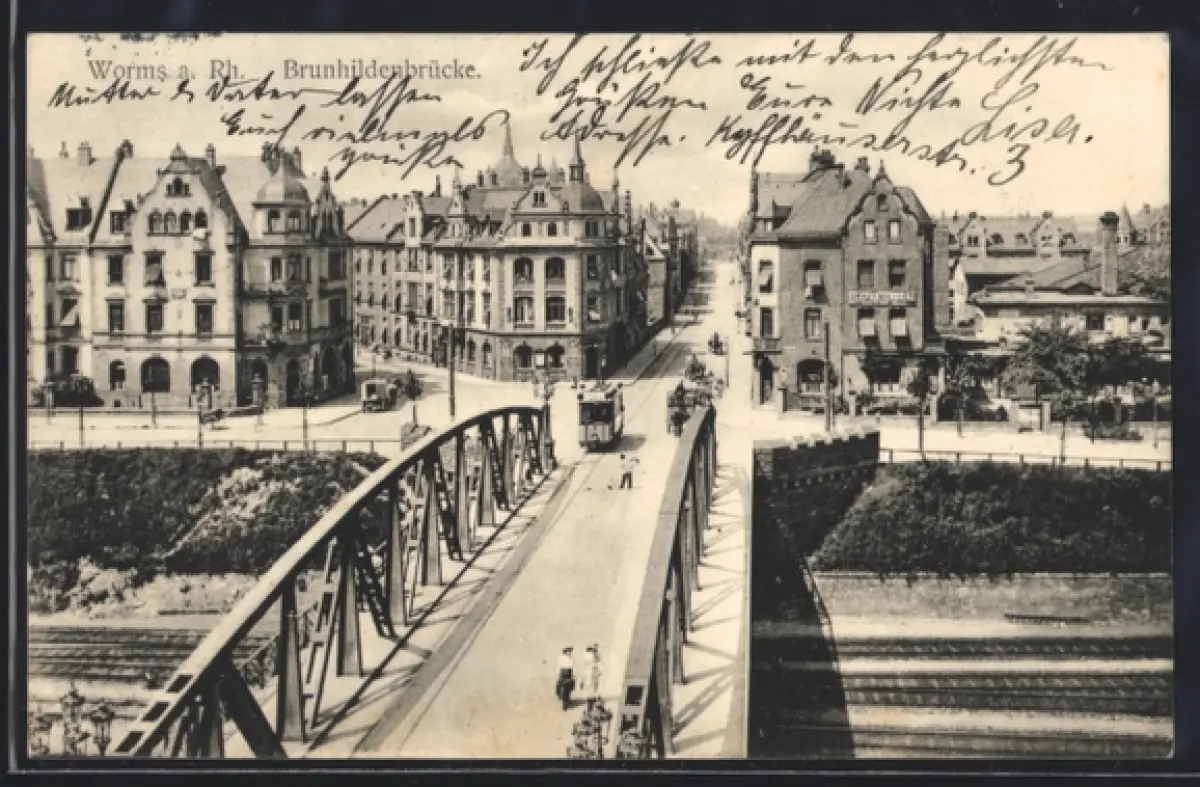 Worms a. Rh. – Brunhildenbrücke.
Mutter & Vater lassen
Euch vielmals
grüßen
Ich schließe mit den herzlichsten
Grüßen Eure Nichte
Liesel.
Adresse. Kyffhäuserstr. 3